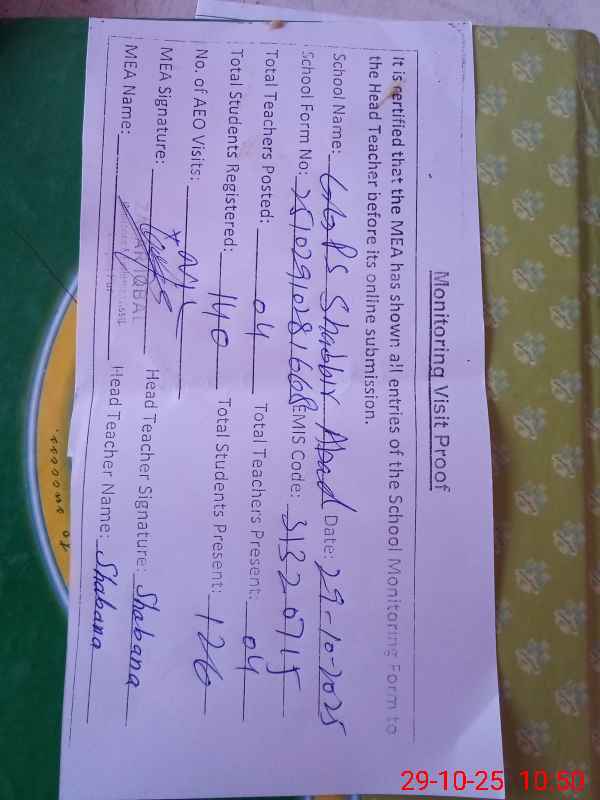 Monitoring Visit Proof
It is certified that the MEA has shown all entries of the School Monitoring Form to
the Head Teacher before its online submission.
School Name: GGPS Shabbir Abad Date: 29-10-2025
School Form No: 2510291028166 EMIS Code: 31320715
Total Teachers Posted: 04 Total Teachers Present: 04
Total Students Registered: 140 Total Students Present: 126
No. of AEO Visits:
MEA Signature: Head Teacher Signature: Shabana
MEA Name: Head Teacher Name: Shabana
IQBAL
29-10-25 10:50